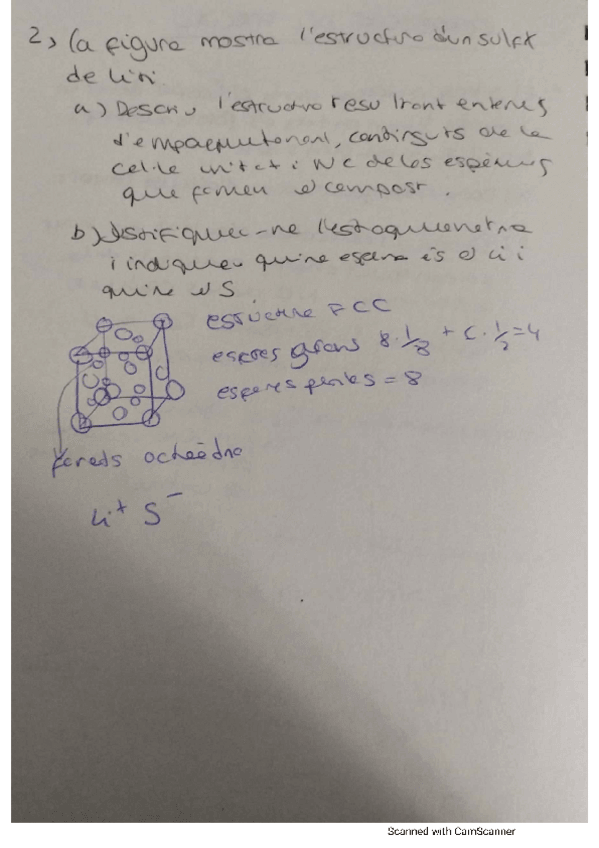 2) La figura mostra l'estructura d'un sulfur
de liti.
a) Descriu l'estructura resultant en termes
d'empaquetament, continguts de la
cel·la unitat i NC de les espècies
que formen el compost.
b) Justifiqueu-ne l'estequiometria
i indiqueu quina esfera és el Li i
quina el S
estructura FCC
esferes grans 8·1/8 + 6·1/2=4
esferes petites = 8
forats octaèdric
Li⁺ S⁻
Scanned with CamScanner